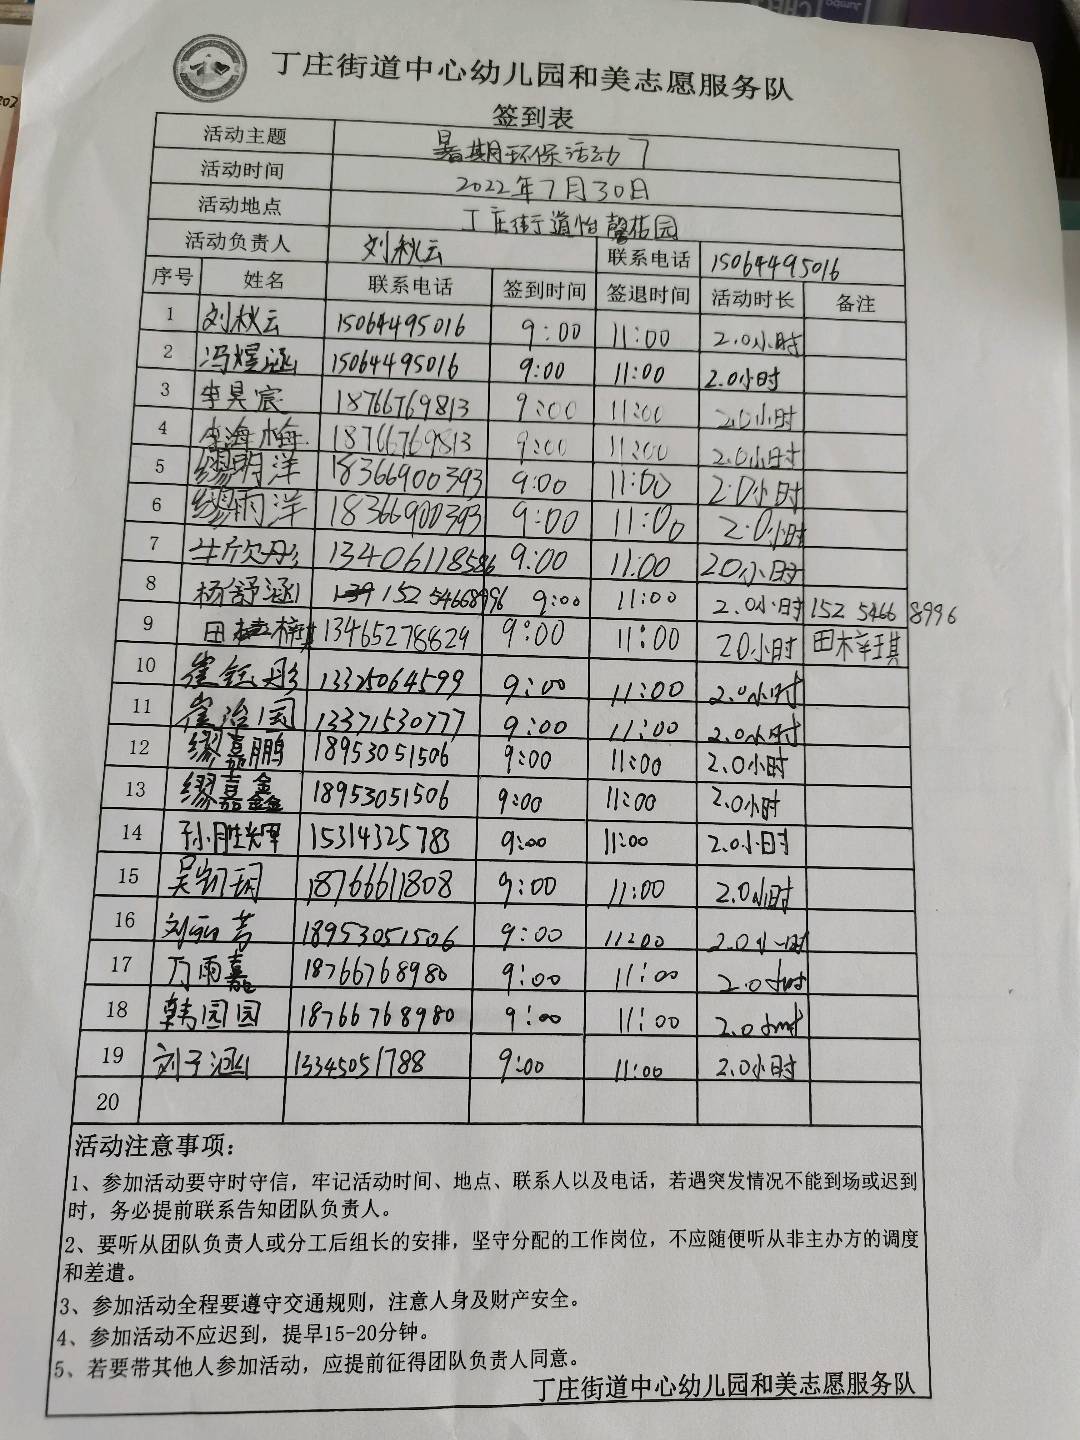 丁庄街道中心幼儿园和美志愿服务队
签到表
活动主题 暑期环保活动7
活动时间 2022年7月30日
活动地点 丁庄街道怡馨花园
活动负责人 刘秋云 联系电话 15064495016
序号 姓名 联系电话 签到时间 签退时间 活动时长 备注
1 刘秋云 15064495016 9:00 11:00 2.0小时
2 冯煜涵 15064495016 9:00 11:00 2.0小时
3 李昊宸 18766769813 9:00 11:00 2.0小时
4 李海梅 18766769813 9:00 11:00 2.0小时
5 缪明洋 18366900393 9:00 11:00 2.0小时
6 缪雨洋 18366900393 9:00 11:00 2.0小时
7 牛欣彤 13406118586 9:00 11:00 2.0小时
8 杨舒涵 139 152 54668996 9:00 11:00 2.0小时 152 5466 8996
9 田梓琪 13465278829 9:00 11:00 2.0小时 田梓琪
10 崔钰彤 13325064599 9:00 11:00 2.0小时
11 崔治国 13371530777 9:00 11:00 2.0小时
12 缪嘉鹏 18953051506 9:00 11:00 2.0小时
13 缪嘉鑫 18953051506 9:00 11:00 2.0小时
14 15314325783 9:00 11:00 2.0小时
15 18766611808 9:00 11:00 2.0小时
16 刘丽芳 18953051506 9:00 11:00 2.0小时
17 万雨嘉 18766768980 9:00 11:00 2.0小时
18 韩园园 18766768980 9:00 11:00 2.0小时
19 刘子涵 13345051788 9:00 11:00 2.0小时
20
活动注意事项：
1、参加活动要守时守信，牢记活动时间、地点、联系人以及电话，若遇突发情况不能到场或迟到
时，务必提前联系告知团队负责人。
2、要听从团队负责人或分工后组长的安排，坚守分配的工作岗位，不应随便听从非主办方的调度
和差遣。
3、参加活动全程要遵守交通规则，注意人身及财产安全。
4、参加活动不应迟到，提早15-20分钟。
5、若要带其他人参加活动，应提前征得团队负责人同意。
丁庄街道中心幼儿园和美志愿服务队